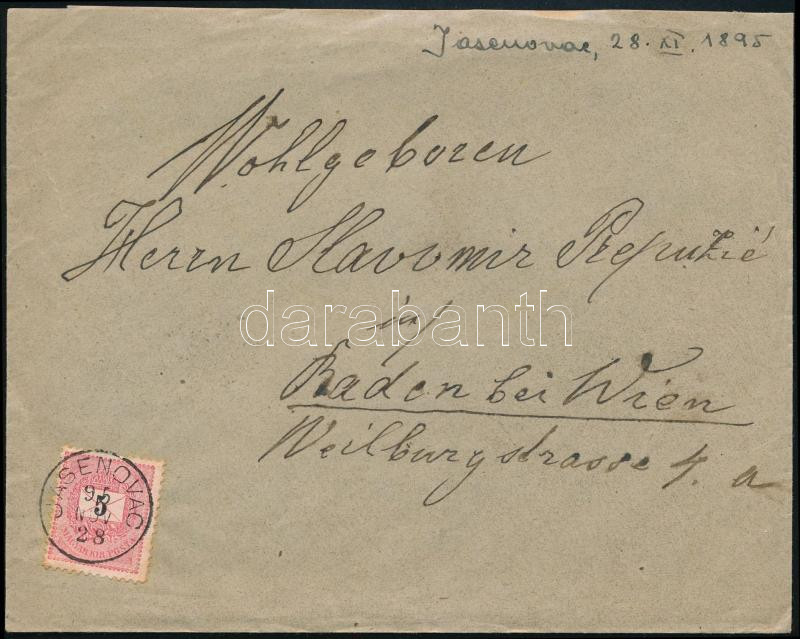 Jasenovac, 28. XI. 1895
Wohlgeboren
Herrn Slavomir
in
Baden bei Wien
Weilburgstrasse 4. a
darabanth
JASENOVAC
95
NOV
28
5
MAGYAR KIR. POSTA